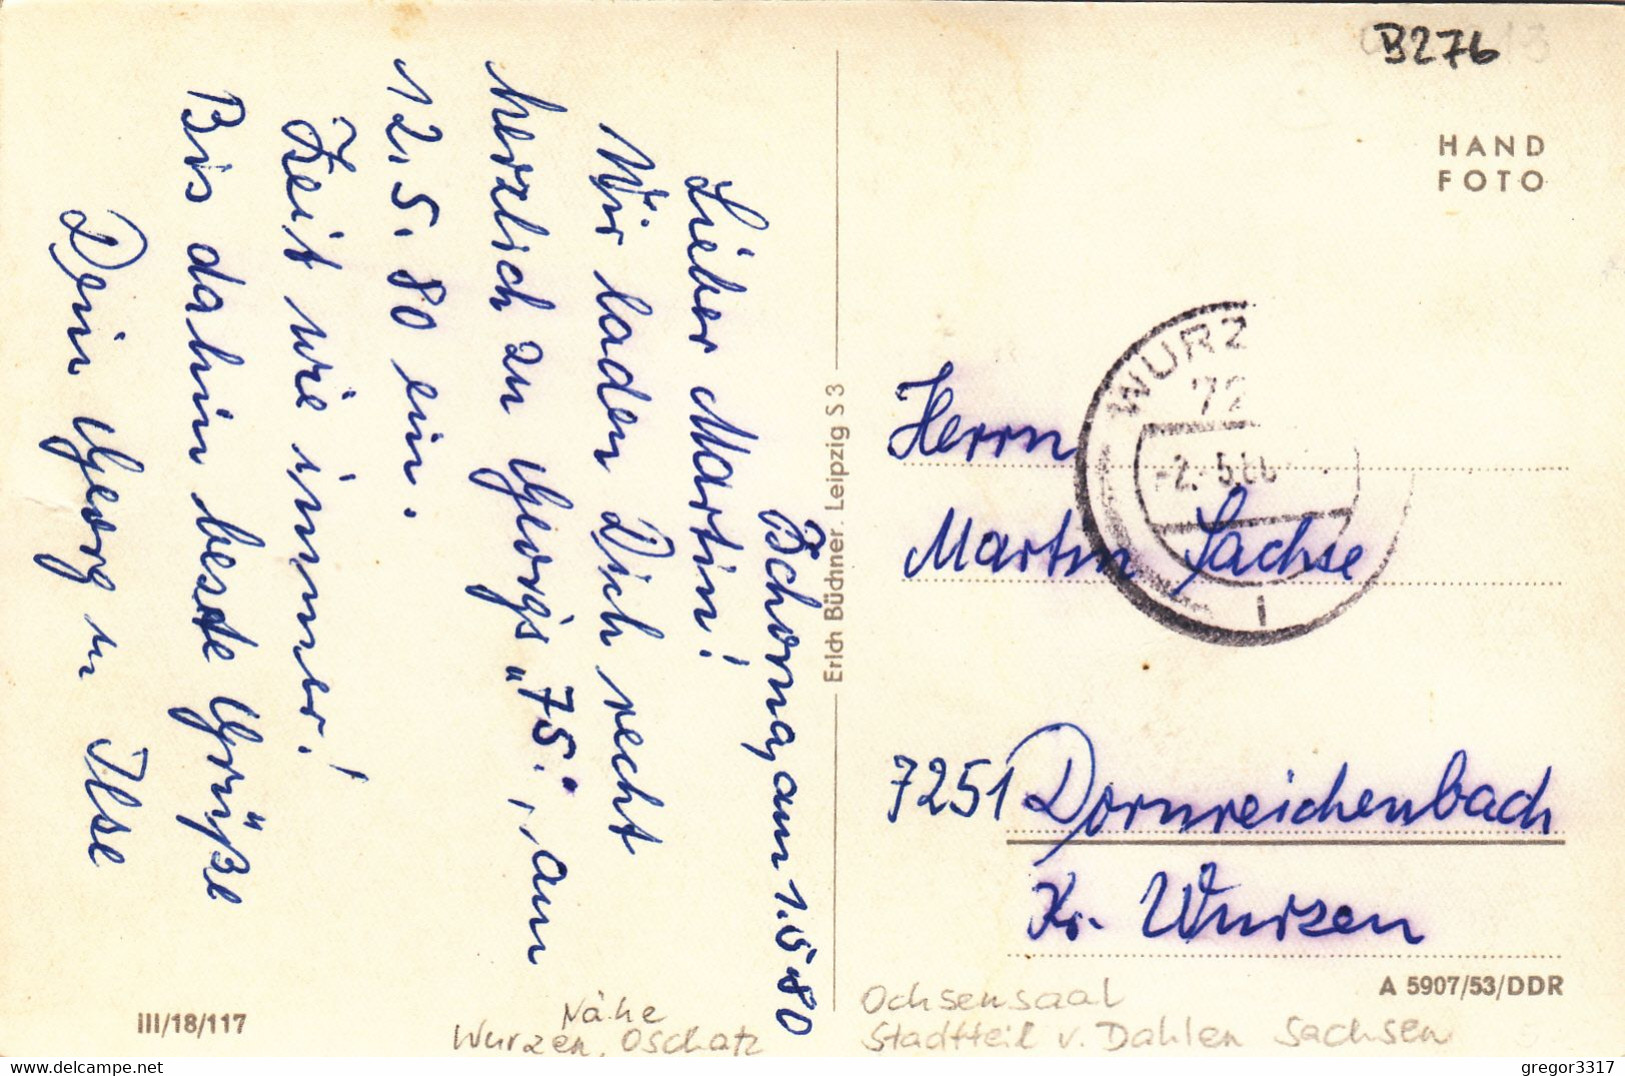 B276
HAND
FOTO
Zschorna, am 1.5.80
Lieber Martin!
Wir laden Dich recht
herzlich zu Georg's „75.“, am
12.5.80 ein.
Zeit wie immer!
Bis dahin beste Grüße
Dein Georg u Ilse
Erich Büchner. Leipzig S 3
WURZ
72
2.-5.80
i
Herrn
Martin Sachse
7251 Dornreichenbach
Kr. Wurzen
A 5907/53/DDR
III/18/117
Nähe
Wurzen, Oschatz
Ochsensaal
Stadtteil v. Dahlen Sachsen
gregor3317